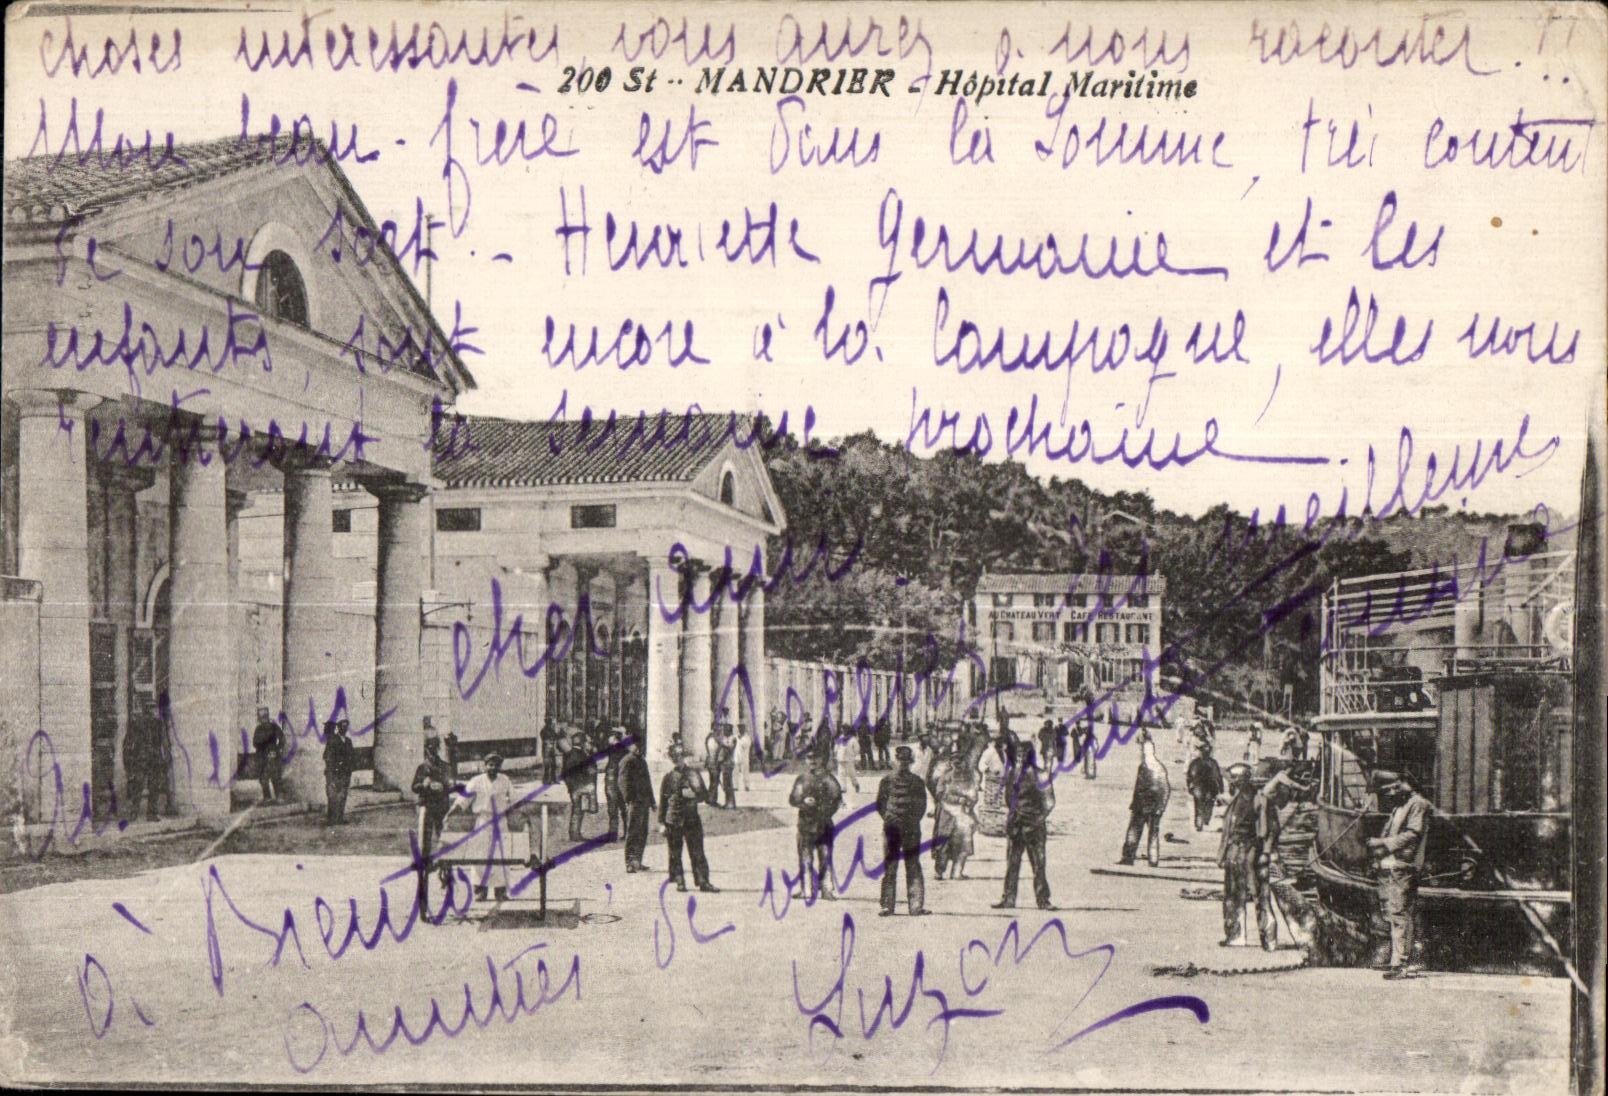 choses interessantes, vous aurez à nous raconter...!!
200 St-MANDRIER - Hôpital Maritime
Mon beau-frère est dans la Somme, très content
de son sort. - Henriette Germaine et les
enfants, sont encore à la Campagne, elles nous
rentreront la semaine prochaine.
Au revoir cher ami. Recevez les meilleures
AU CHATEAU VERT CAFÉ RESTAURANT
à Bientot
amitiés de votre petite
Suzon